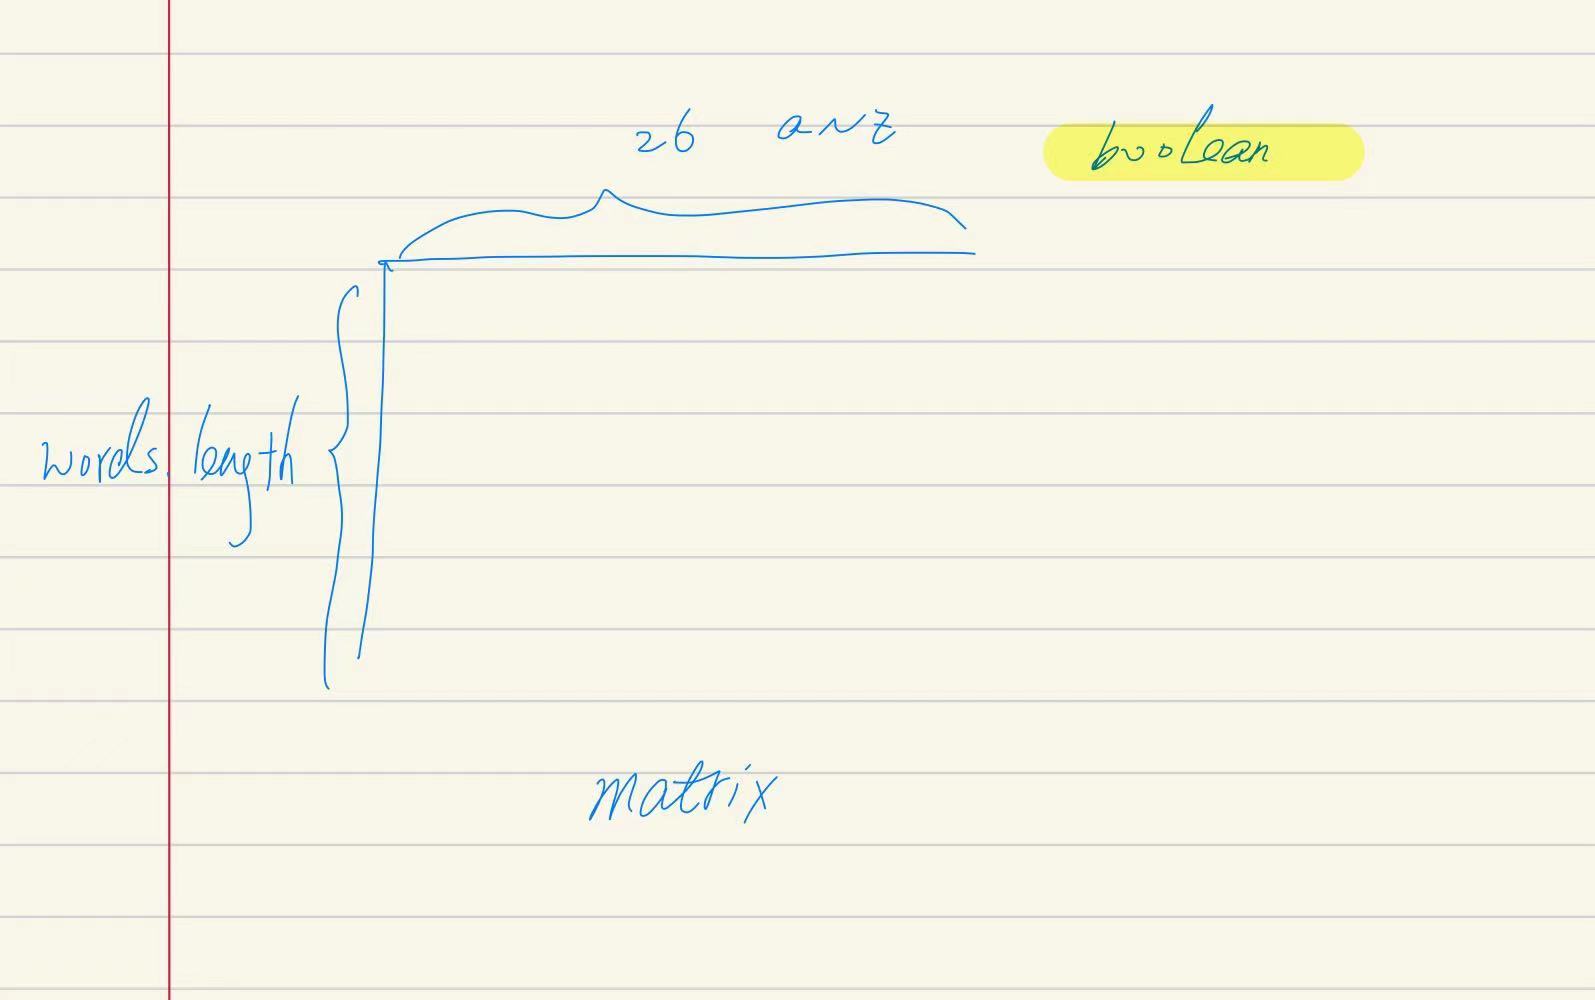 26 a~z boolean
words.length
matrix